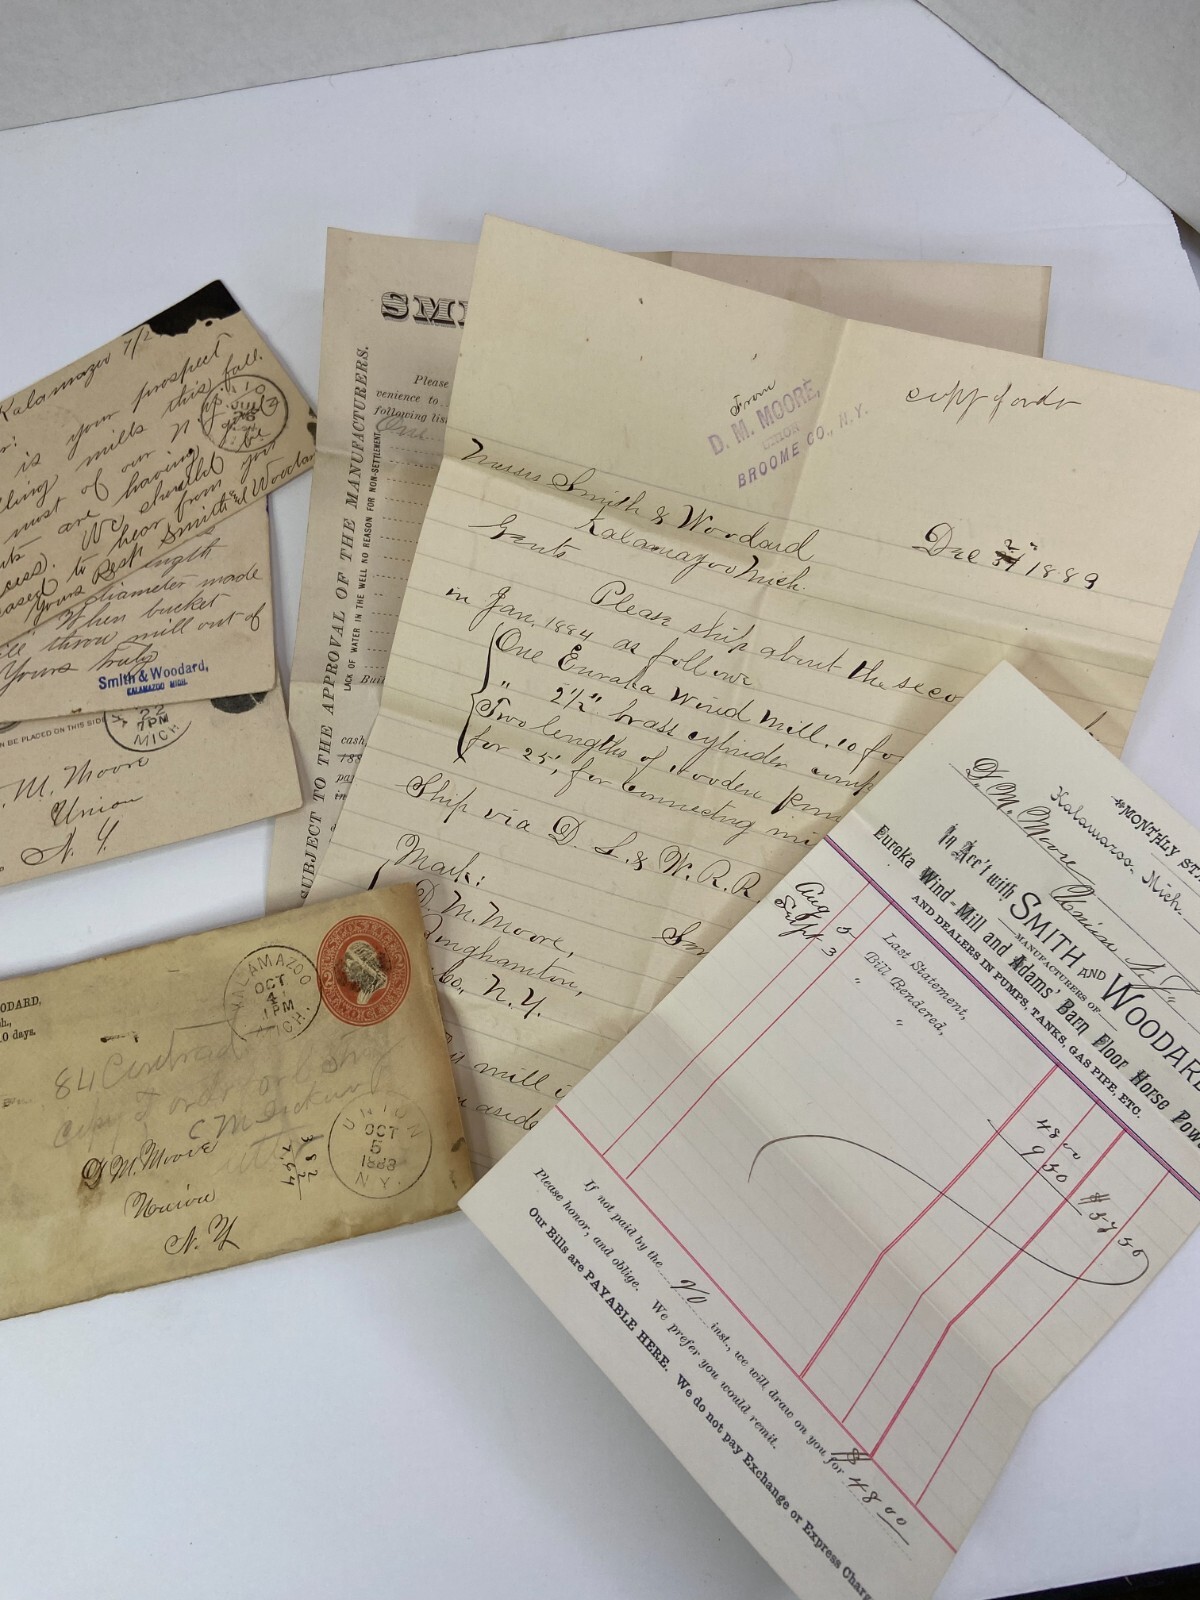 Kalamazoo 7/2
is your prospect
mills this fall.
most of our N.Y.
are having good
We should be
to hear from you
Yours Resp Smith & Woodard
length
diameter made
When bucket
throw mill out of
Yours truly
Smith & Woodard,
KALAMAZOO MICH.
JUL
BE PLACED ON THIS SIDE
22
7PM
MICH
M. Moore
Union
N. Y.
ODARD,
10 days.
KALAMAZOO
OCT
4
1PM
MICH.
84 Contract
Copy of order for
D. M. Moore
Union
N. Y.
UNION
OCT
5
1883
N.Y.
SMI
Please
venience to
following list
One
SUBJECT TO THE APPROVAL OF THE MANUFACTURERS.
LACK OF WATER IN THE WELL NO REASON FOR NON-SETTLEMENT
cash,
188
pay
in
From
D. M. MOORE,
UNION
BROOME CO., N.Y.
copy of order
Messrs Smith & Woodard
Kalamazoo Mich.
Dec 2" 1883
Gents
Please ship about the seco
in Jan. 1884 as follows
One Eureka Wind Mill. 10 foo
" 2½" brass cylinder comp
Two lengths of wooden
for 25', for connecting
Ship via D. L. & W. R. R.
Mark:
D. M. Moore,
inghamton,
Co., N. Y.
mill
aside
Sm
MONTHLY STA
Kalamazoo, Mich.
D. M. Moore Union N.Y.
In Acc't with SMITH AND WOODARD
MANUFACTURERS OF
Eureka Wind-Mill and Adams' Barn Floor Horse Powe
AND DEALERS IN PUMPS, TANKS, GAS PIPE, ETC.
Aug 5 Last Statement, 48 00
Sept 3 Bill Rendered, 9 50 $57 50
" "
If not paid by the 20 inst., we will draw on you for $48 00
Please honor, and oblige. We prefer you would remit.
Our Bills are PAYABLE HERE. We do not pay Exchange or Express Charg